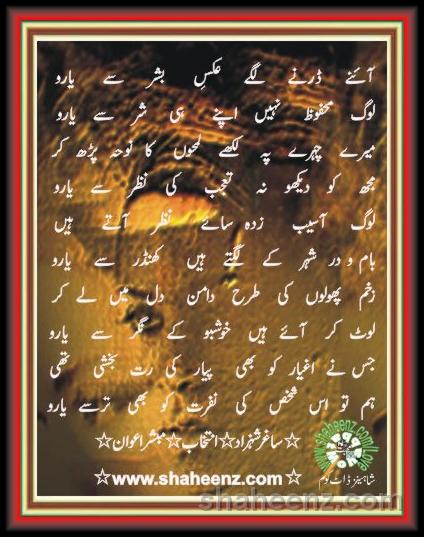 آئنے ڈرنے لگے عکسِ بشر سے یارو
لوگ محفوظ نہیں اپنے ہی شر سے یارو
میرے چہرے پہ لکھے لمحوں کا نوحہ پڑھ کر
مجھ کو دیکھو نہ تعجب کی نظر سے یارو
لوگ آسیب زدہ سائے نظر آتے ہیں
بام و در شہر کے لگتے ہیں کھنڈر سے یارو
زخم پھولوں کی طرح دامنِ دل میں لے کر
لوٹ کر آئے ہیں خوشبو کے نگر سے یارو
جس نے اغیار کو بھی پیار کی رت بخشی تھی
ہم تو اس شخص کی نفرت کو بھی ترسے یارو
☆ساغر شہزاد☆انتخاب☆مبشر اعوان☆
☆www.shaheenz.com☆
www.shaheenz.com/Love
شاہینز ڈاٹ کوم
shaheenz.com